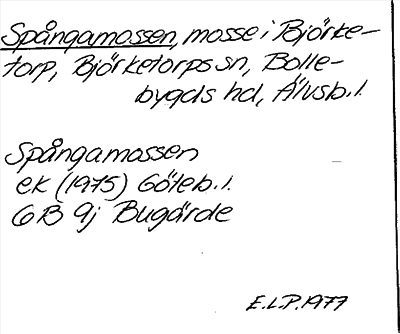 Spångamossen, mosse i Björke-
torp, Björketorps sn, Bolle-
bygds hd, Älvsb. l.
Spångamossen
ek (1975) Göteb. l.
6B 9j Bugärde
E.L.P. 1977